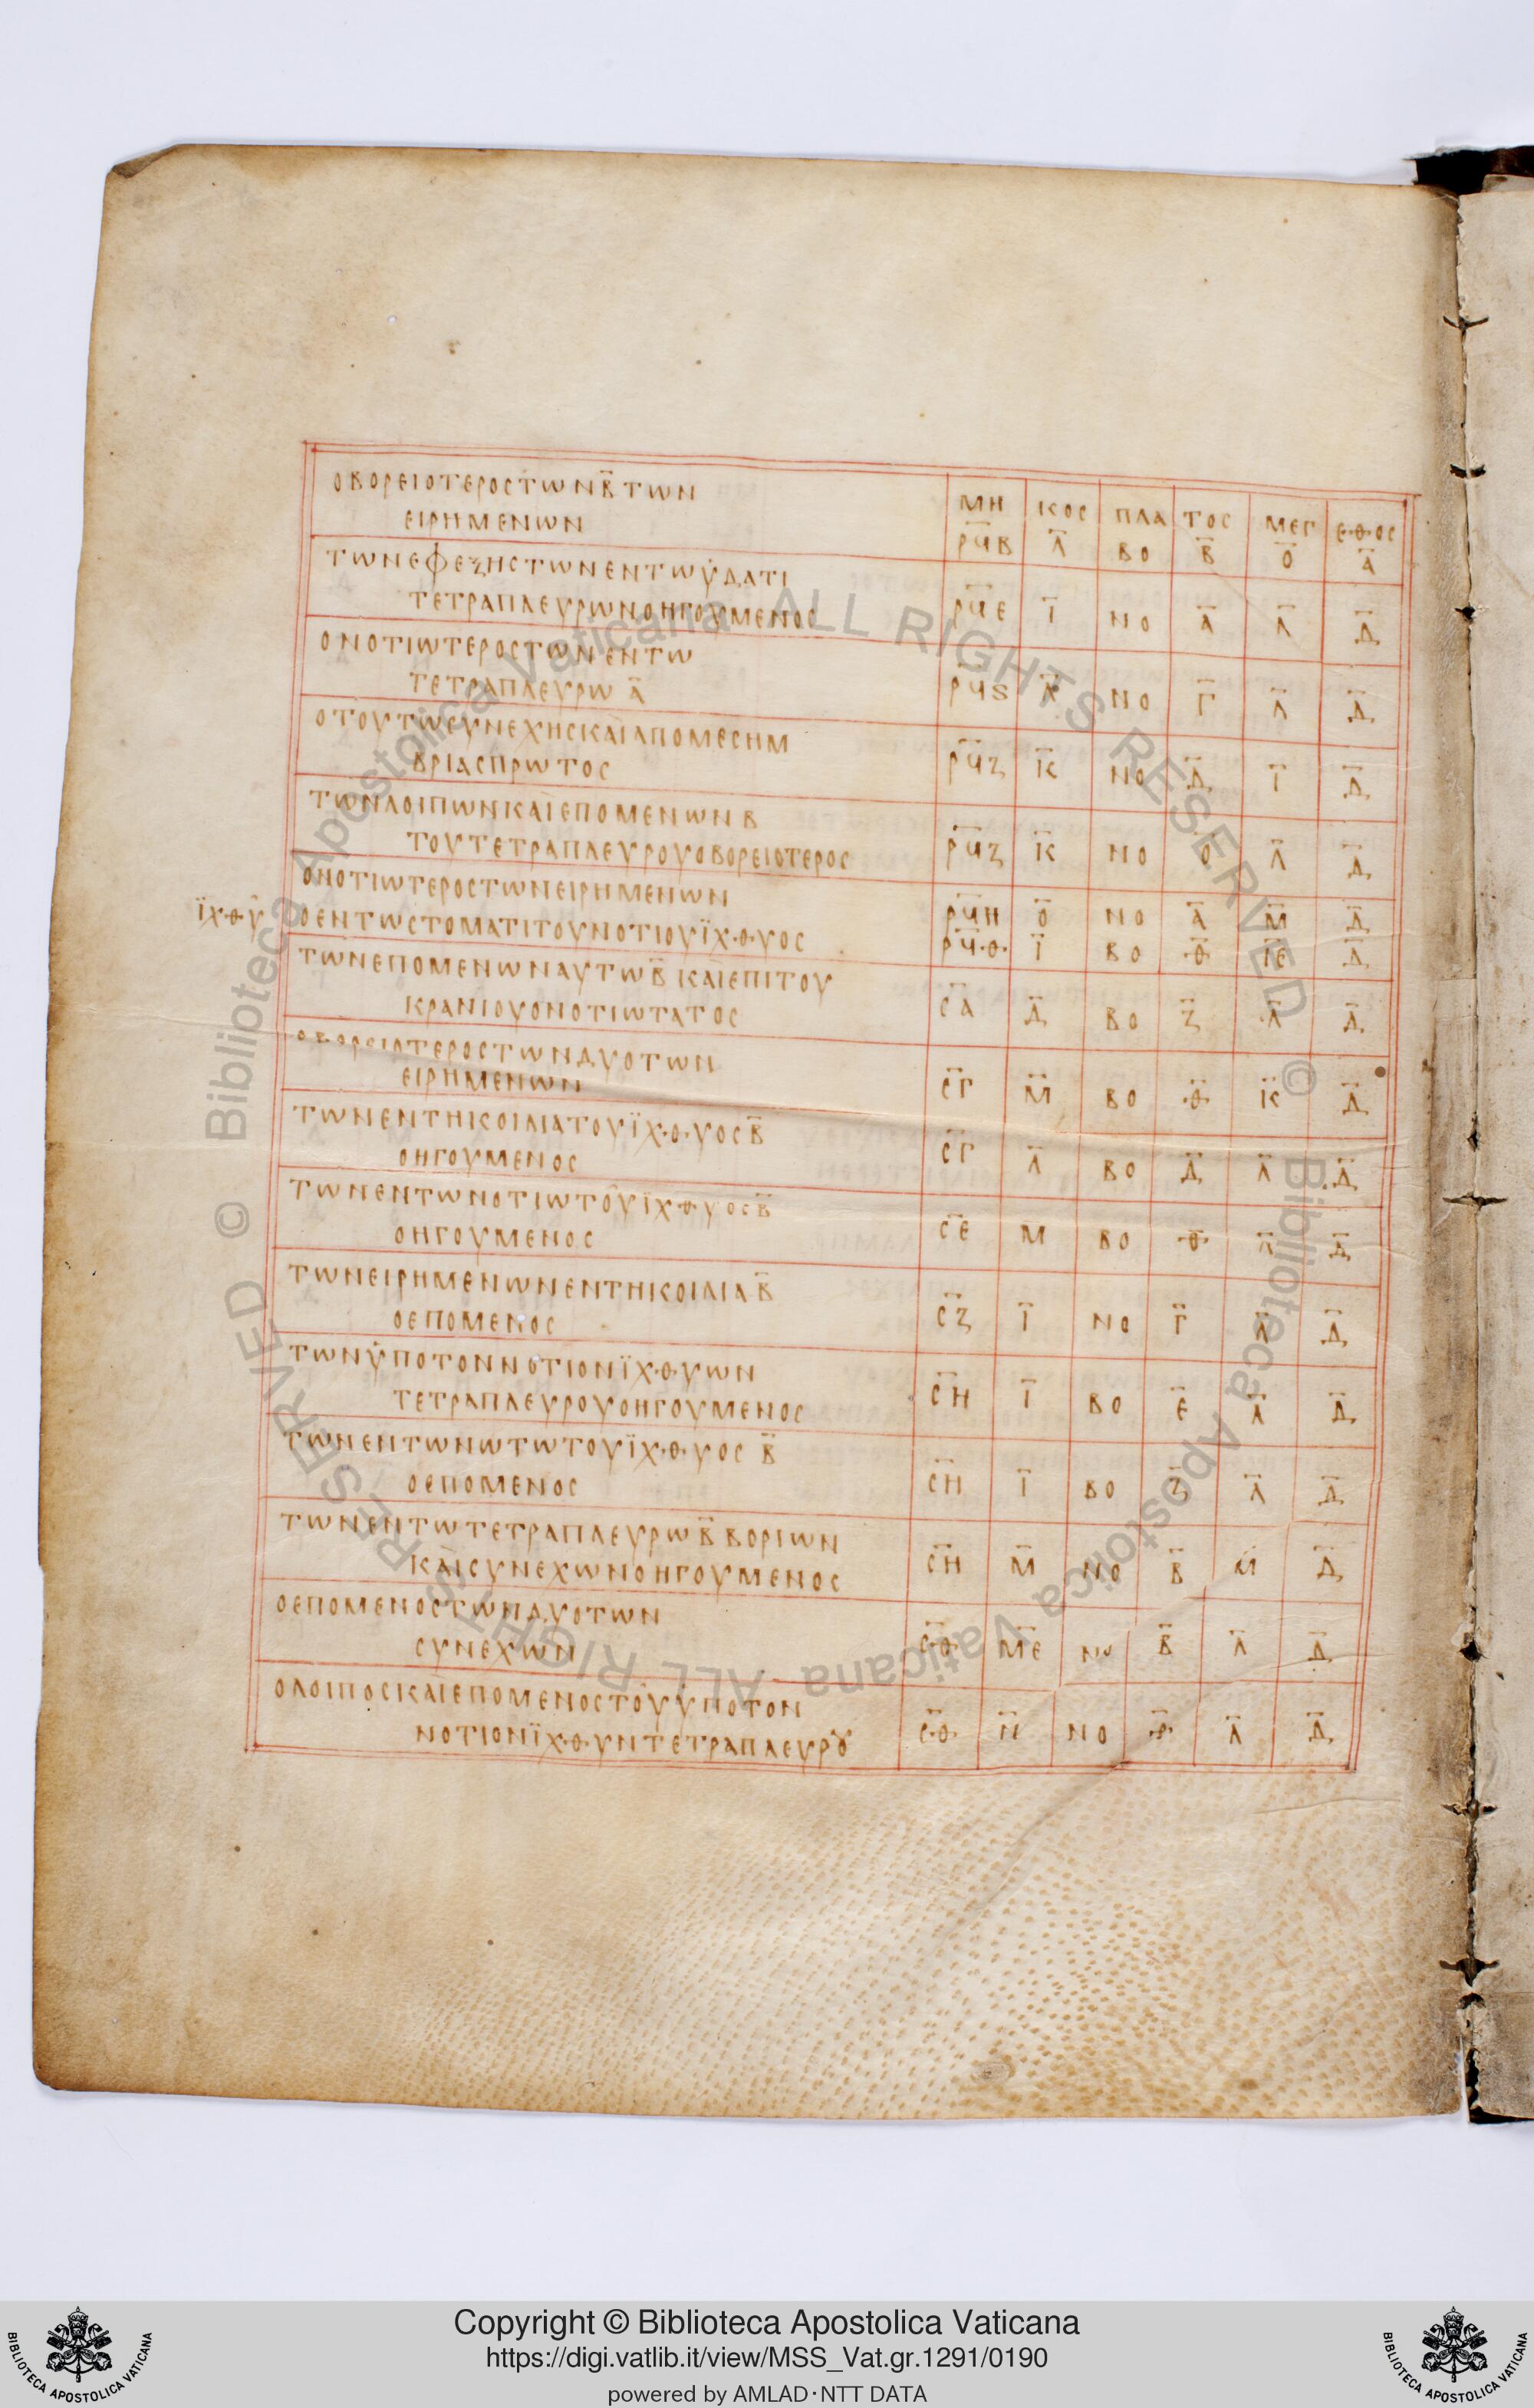 ΟΒΟΡΕΙΟΤΕΡΟCΤωΝΒ̅ΤωΝ
ΕΙΡΗΜΕΝωΝ
ΜΗ ΚΟC ΠΛΑ ΤΟC ΜΕΓ ΕΘΟC
ΡϤΒ Λ ΒΟ Β Ο Α
ΤωΝΕΦΕΞΗCΤωΝΕΝΤωΥΔΑΤΙ
ΤΕΤΡΑΠΛΕΥΡωΝΟΗΓΟΥΜΕΝΟC ΡϤΕ Ι ΝΟ Α Λ Δ
ΟΝΟΤΙωΤΕΡΟCΤωΝΕΝΤω
ΤΕΤΡΑΠΛΕΥΡω Α̅ ΡϤϚ Λ ΝΟ Γ Λ Δ
ΟΤΟΥΤωCΥΝΕΧΗCΚΑΙΑΠΟΜΕCΗΜ
ΒΡΙΑCΠΡωΤΟC ΡϤΖ ΙΚ ΝΟ Δ Ι Δ
ΤωΝΛΟΙΠωΝΚΑΙΕΠΟΜΕΝωΝ Β
ΤΟΥΤΕΤΡΑΠΛΕΥΡΟΥΟΒΟΡΕΙΟΤΕΡΟC ΡϤΖ ΙΚ ΝΟ Ο Λ Δ
ΟΝΟΤΙωΤΕΡΟCΤωΝΕΙΡΗΜΕΝωΝ ΡϤΗ Ο ΝΟ Α Μ Δ
ΪΧΘΥ ΟΕΝΤωCΤΟΜΑΤΙΤΟΥΝΟΤΙΟΥΪΧΘΥΟC ΡϤΘ Ι ΒΟ Θ ΙΕ Δ
ΤωΝΕΠΟΜΕΝωΝΑΥΤωΒ̅ ΚΑΙΕΠΙΤΟΥ
ΚΡΑΝΙΟΥΟΝΟΤΙωΤΑΤΟC CΑ Δ ΒΟ Ζ Λ Δ
ΟΒΟΡΕΙΟΤΕΡΟCΤωΝΔΥΟΤωΝ
ΕΙΡΗΜΕΝωΝ CΓ Μ ΒΟ Θ ΙΚ Δ
ΤωΝΕΝΤΗΚΟΙΛΙΑΤΟΥΪΧΘΥΟCΒ̅
ΟΗΓΟΥΜΕΝΟC CΓ Λ ΒΟ Δ Λ Δ
ΤωΝΕΝΤωΝΟΤΙωΤΟΥΪΧΘΥΟCΒ̅
ΟΗΓΟΥΜΕΝΟC CΕ Μ ΒΟ Θ Λ Δ
ΤωΝΕΙΡΗΜΕΝωΝΕΝΤΗΚΟΙΛΙΑΒ̅
ΟΕΠΟΜΕΝΟC CΖ Ι ΝΟ Γ Λ Δ
ΤωΝΥΠΟΤΟΝΝΟΤΙΟΝΪΧΘΥωΝ
ΤΕΤΡΑΠΛΕΥΡΟΥΟΗΓΟΥΜΕΝΟC CΗ Ι ΒΟ Ε Λ Δ
ΤωΝΕΝΤωΝωΤωΤΟΥΪΧΘΥΟC Β̅
ΟΕΠΟΜΕΝΟC CΗ Ι ΒΟ Ζ Λ Δ
ΤωΝΕΝΤωΤΕΤΡΑΠΛΕΥΡωΒ̅ΒΟΡΙωΝ
ΚΑΙCΥΝΕΧωΝΟΗΓΟΥΜΕΝΟC CΗ Μ ΝΟ Β Μ Δ
ΟΕΠΟΜΕΝΟCΤωΝΔΥΟΤωΝ
CΥΝΕΧωΝ CΘ ΜΕ ΝΟ Β Λ Δ
ΟΛΟΙΠΟCΚΑΙΕΠΟΜΕΝΟCΤΟΥΥΠΟΤΟΝ
ΝΟΤΙΟΝΪΧΘΥΝΤΕΤΡΑΠΛΕΥΡȢ CΘ Ν ΝΟ Λ Δ
© Biblioteca Apostolica Vaticana ALL RIGHTS RESERVED
© Biblioteca Apostolica Vaticana ALL RIGHTS RESERVED
Copyright © Biblioteca Apostolica Vaticana
https://digi.vatlib.it/view/MSS_Vat.gr.1291/0190
powered by AMLAD·NTT DATA
BIBLIOTECA APOSTOLICA VATICANA
BIBLIOTECA APOSTOLICA VATICANA